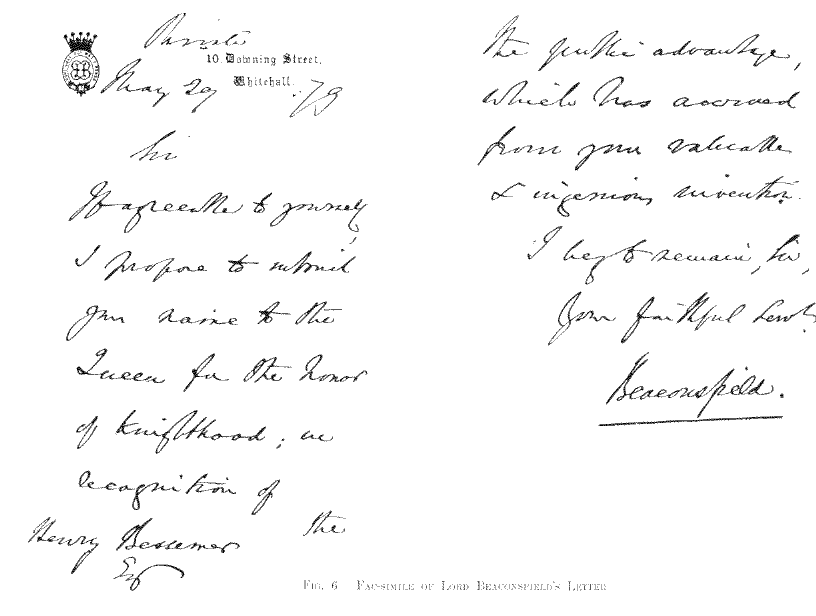 Private
10, Downing Street,
Whitehall.
May 29 :79
Sir
If agreeable to yourself,
I propose to submit
your name to the
Queen for the honor
of Knighthood, in
recognition of
the
Henry Bessemer
Esq
the public advantage,
which has accrued
from your valuable
& ingenious invention.
I beg to remain, Sir,
Your faithful Servt.
Beaconsfield.
FIG. 6 FAC-SIMILE OF LORD BEACONSFIELD'S LETTER